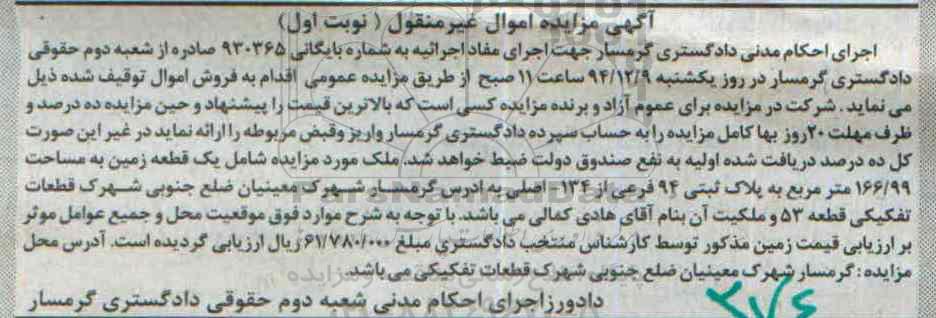 آگهی مزایده اموال غیرمنقول ( نوبت اول)
اجرای احکام مدنی دادگستری گرمسار جهت اجرای مفاد اجرائیه به شماره بایگانی ۹۳۰۳۶۵ صادره از شعبه دوم حقوقی
دادگستری گرمسار در روز یکشنبه ۹۴/۱۲/۹ ساعت ۱۱ صبح از طریق مزایده عمومی اقدام به فروش اموال توقیف شده ذیل
می نماید . شرکت در مزایده برای عموم آزاد و برنده مزایده کسی است که بالاترین قیمت را پیشنهاد و حین مزایده ده درصد و
ظرف مهلت ۲۰روز بها کامل مزایده را به حساب سپرده دادگستری گرمسار واریز وقبض مربوطه را ارائه نماید در غیر این صورت
کل ده درصد دریافت شده اولیه به نفع صندوق دولت ضبط خواهد شد. ملک مورد مزایده شامل یک قطعه زمین به مساحت
۱۶۶/۹۹ متر مربع به پلاک ثبتی ۹۴ فرعی از ۱۳۴- اصلی به ادرس گرمسار شهرک معینیان ضلع جنوبی شهرک قطعات
تفکیکی قطعه ۵۳ و ملکیت آن بنام آقای هادی کمالی می باشد. با توجه به شرح موارد فوق موقعیت محل و جمیع عوامل موثر
بر ارزیابی قیمت زمین مذکور توسط کارشناس منتخب دادگستری مبلغ ۶۱/۷۸۰/۰۰۰ریال ارزیابی گردیده است. آدرس محل
مزایده : گرمسار شهرک معینیان ضلع جنوبی شهرک قطعات تفکیکی می باشد.
دادورز اجرای احکام مدنی شعبه دوم حقوقی دادگستری گرمسار
۳۷۶